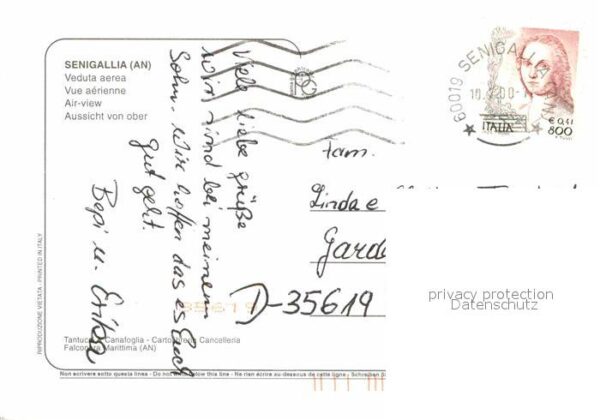 SENIGALLIA (AN)
Veduta aerea
Vue aérienne
Air-view
Aussicht von ober
Viele liebe grüße
wir sind bei meinem
Sohn. Wir hoffen das es Euch
gut geht.
Bepi u. Erika
60019 SENIGALLIA (AN)
€ 0,41
800
ITALIA
Fam.
Linda e
Garde
D-35619
35619
privacy protection
Datenschutz
Tantucci - Canafoglia - Cartolibreria Cancelleria
Falconara Marittima (AN)
RIPRODUZIONE VIETATA - PRINTED IN ITALY
Non scrivere sotto questa linea - Do not write below this line - Ne rien écrire au-dessous de cette ligne - Schreiben S